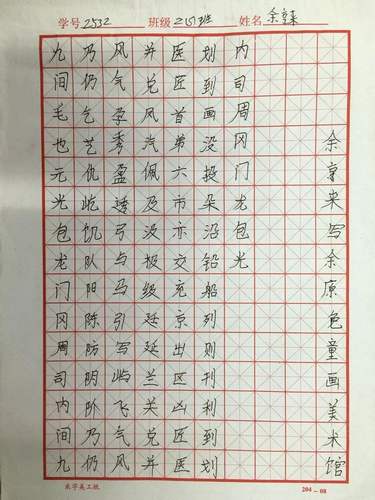 学号 2532 班级 2151班 姓名 余享来
九间毛也元光包龙门冈周司内间九
乃仍气艺仇屹饥队阳陈防阴阶乃仍
风气孕秀盈透弓与马引写屿飞气风
并兑风汽佩及汲极级廷延兰关兑并
医匠首弟六市亦交充京出区凶匠医
划到画没投朵沿铅船列则刊利到划
内司周冈门龙包光
余享来写余原色童画美术馆
204-08